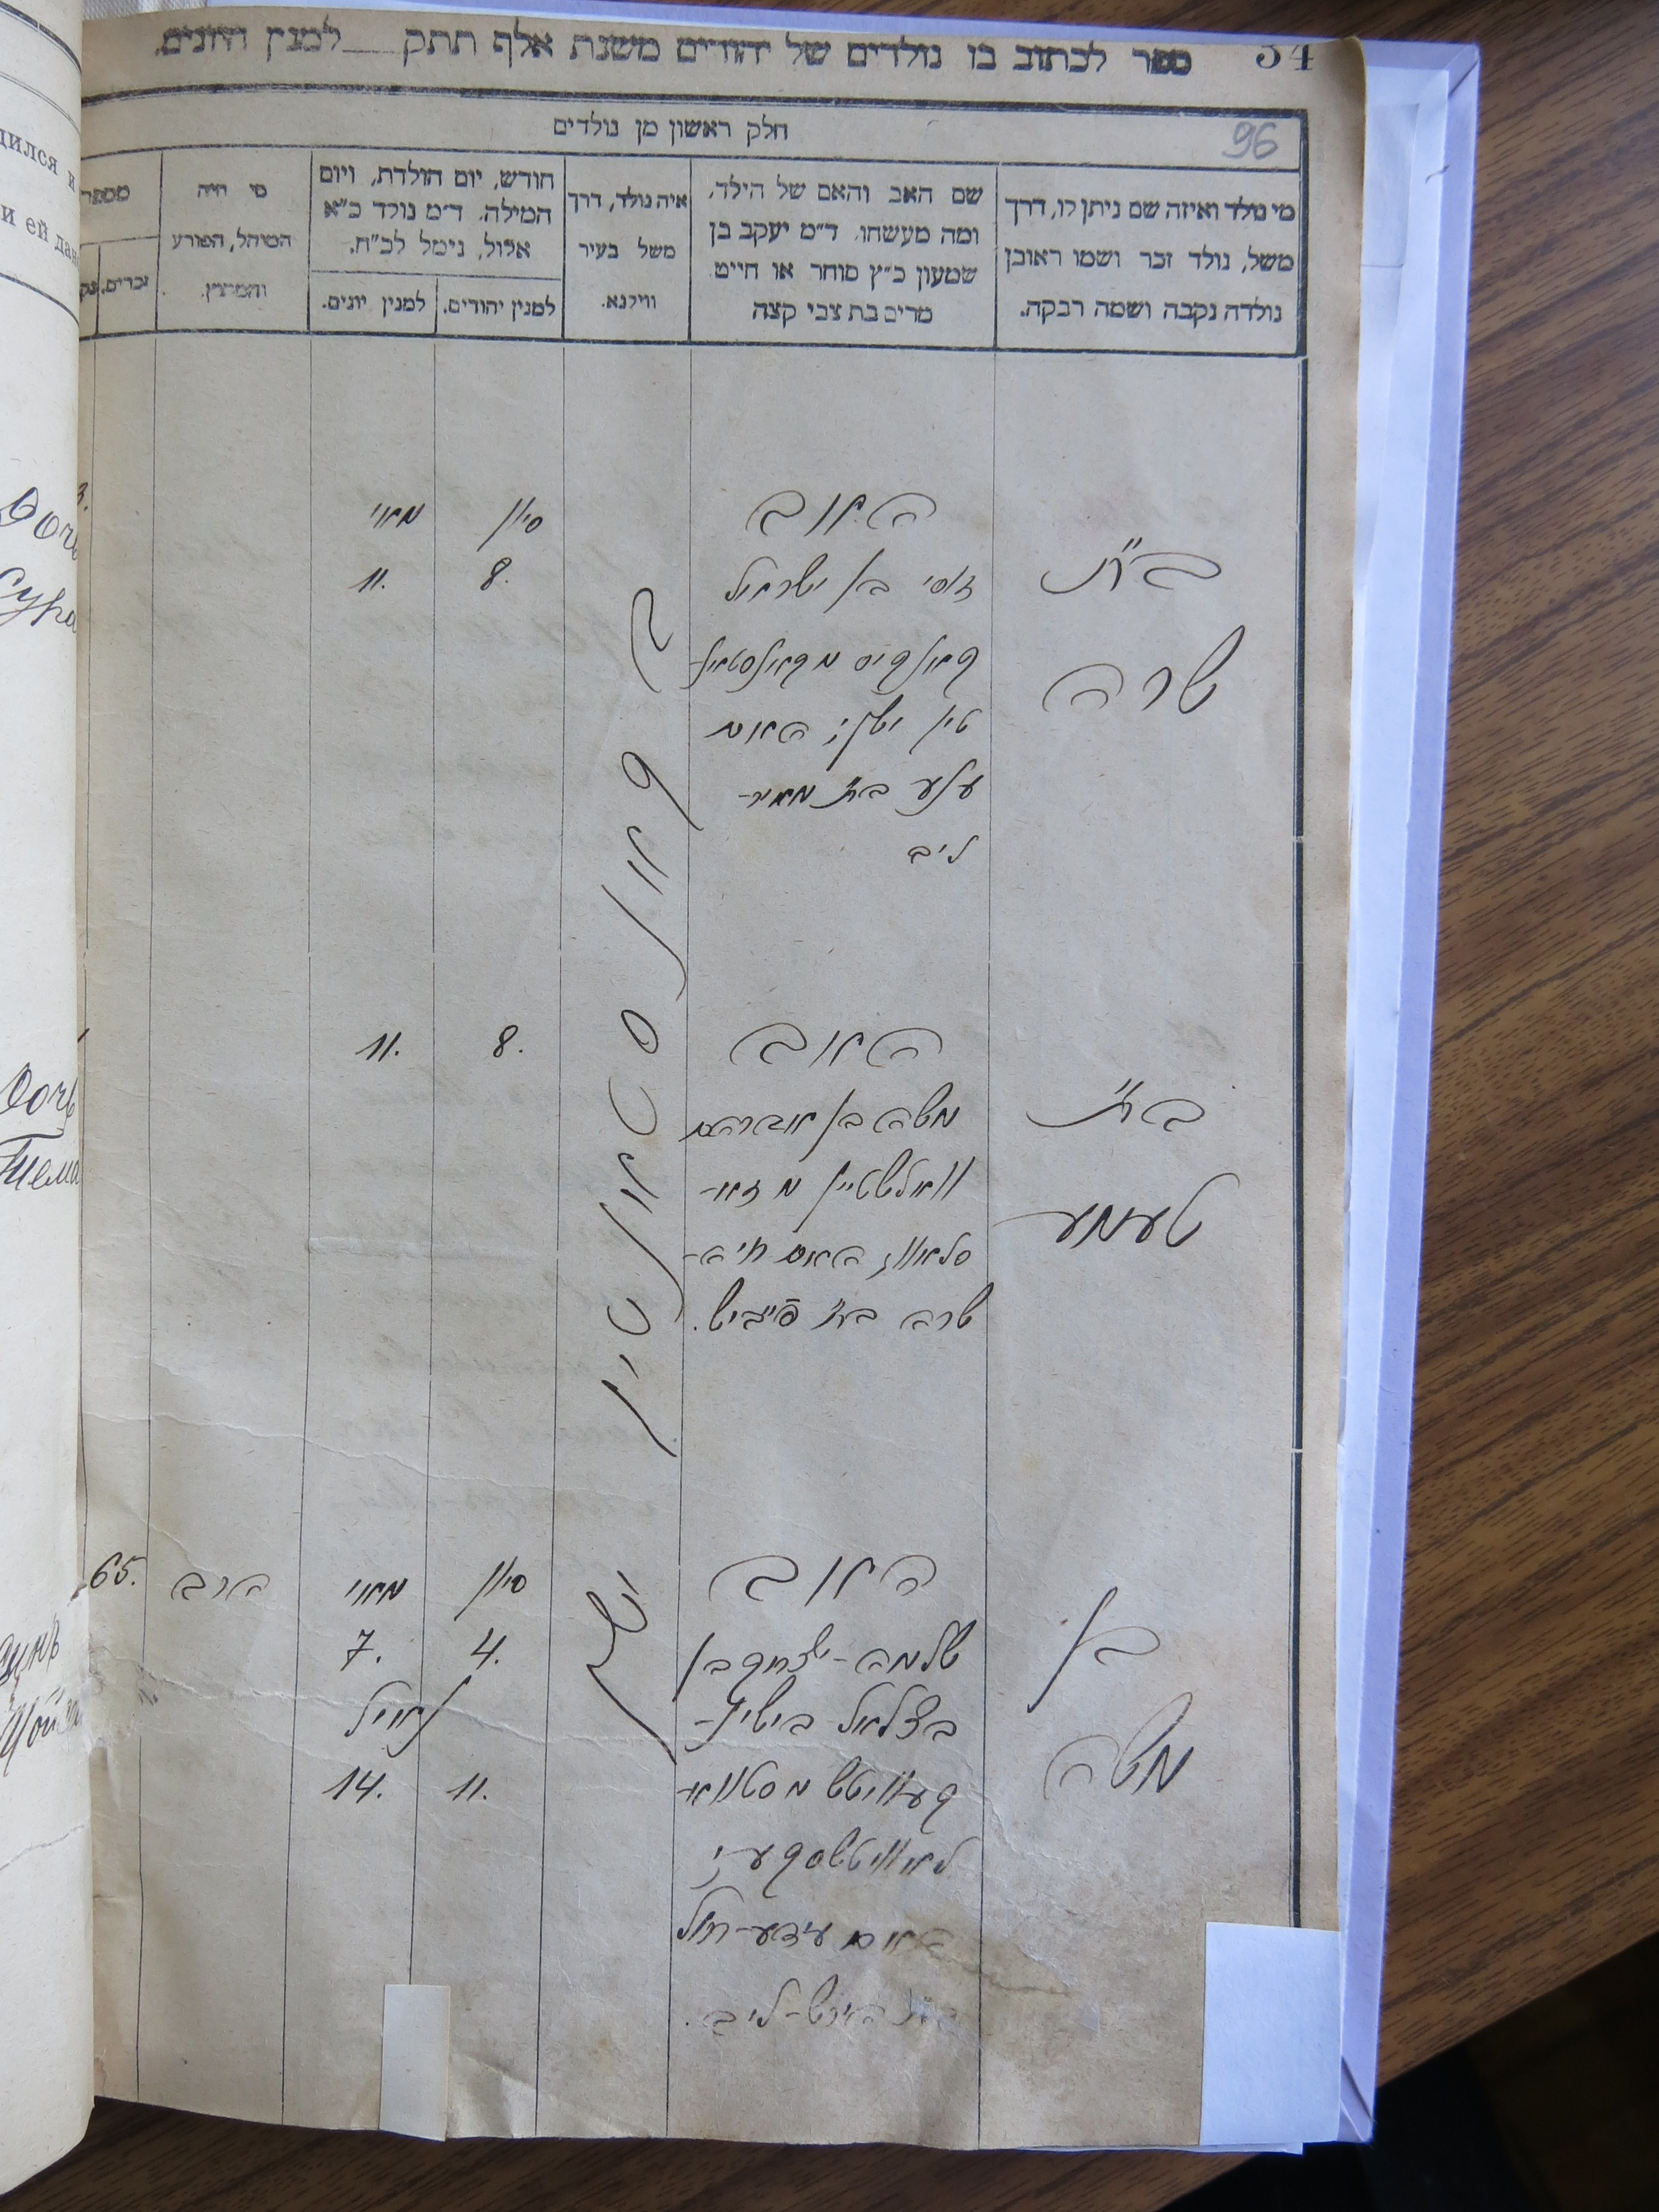 54
ספר לכתוב בו נולדים של יהודים משנת אלף תתק למנין היונים.
96
חלק ראשון מן נולדים
מי נולד ואיזה שם ניתן לו, דרך
משל, נולד זכר ושמו ראובן
נולדה נקבה ושמה רבקה.
שם האב והאם של הילד,
ומה מעשהו. ד"מ יעקב בן
שמעון כ"ץ סוחר או חייט
מרים בת צבי קצה
איה נולד, דרך
משל בעיר
ווילנא.
חודש, יום הולדת, ויום
המילה. ד"מ נולד כ"א
אלול, נימל לכ"ח.
למנין יהודים.
למנין יונים.
מי היה
המוהל, הפורע
והמוצץ.
מספר
זכרים.
ב"ת
שרה
האב
זוסי בן ישראל
מקאנסטאנ-
טין ישן; האם
עלע בת מאיר-
ליב
קאנסטאנטין
סיון
8.
מאי
11.
בת
טעמע
האב
משה בן אברהם
וואלשטיין מ זא-
סלאוו; האם חיה-
שרה בת פייביש.
8.
11.
בן
משה
האב
שלמה-יצחק בן
בצלאל
מ סטווא-
האם עידע-רחל
הירש-ליב.
ישן
סיון
4.
11.
מאי
7.
נימול
14.
הרב
65.
Дочь
Сура
Дочь
Тема